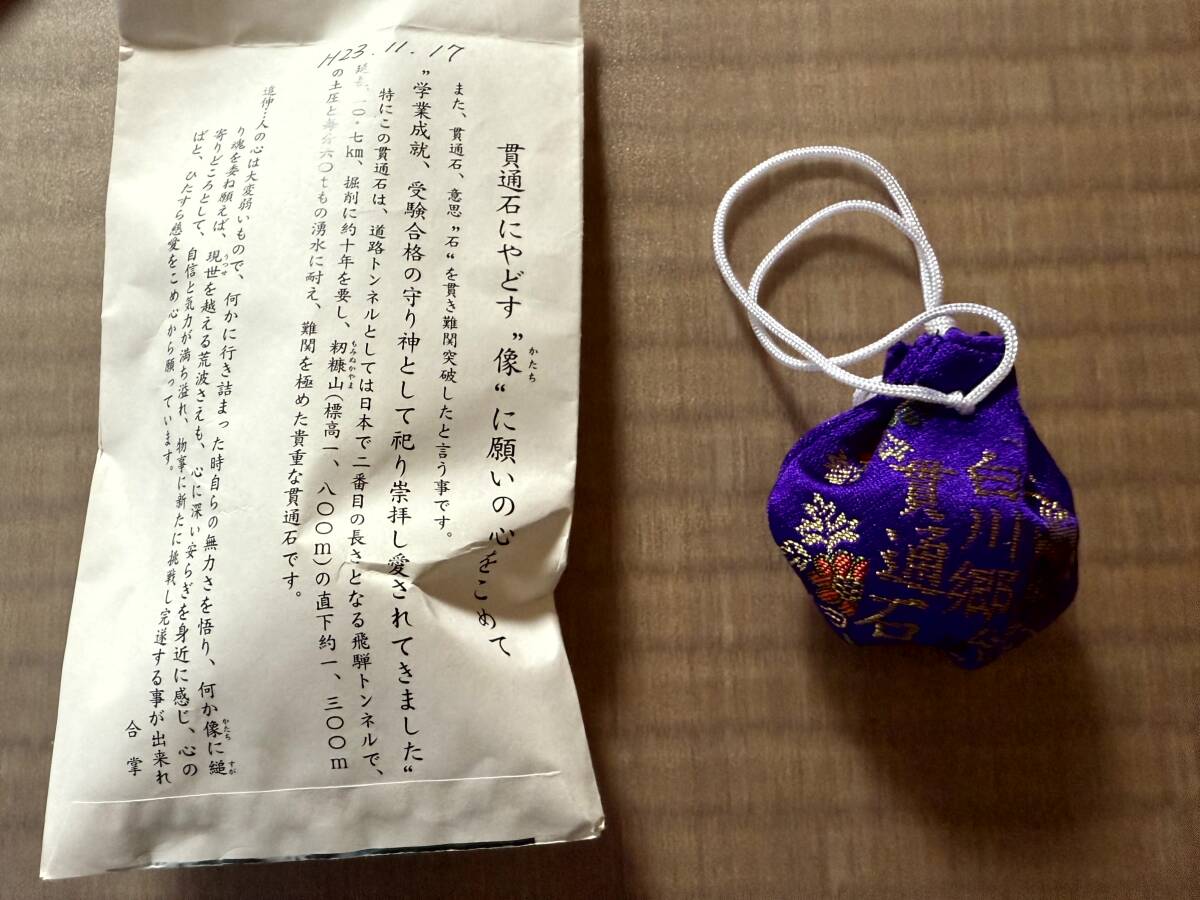 H23.11.17
貫通石にやどす〝像〟に願いの心をこめて
かたち
また、貫通石、意思〝石〟を貫き難関突破したと言う事です。
〝学業成就、受験合格の守り神として祀り崇拝し愛されてきました〟
特にこの貫通石は、道路トンネルとしては日本で二番目の長さとなる飛騨トンネルで、
延長、一〇・七km、掘削に約十年を要し、籾糠山(標高一、八〇〇m)の直下約一、三〇〇m
もみぬかやま
の土圧と毎分六〇tもの湧水に耐え、難関を極めた貴重な貫通石です。
追伸…人の心は大変弱いもので、何かに行き詰まった時自らの無力さを悟り、何か像に縋
かたち
すが
り魂を委ね願えば、現世を越える荒波さえも、心に深い安らぎを身近に感じ、心の
うつせ
寄りどころとして、自信と気力が満ち溢れ、物事に新たに挑戦し完遂する事が出来れ
ばと、ひたすら慈愛をこめ心から願っています。
合掌
白川郷
貫通石